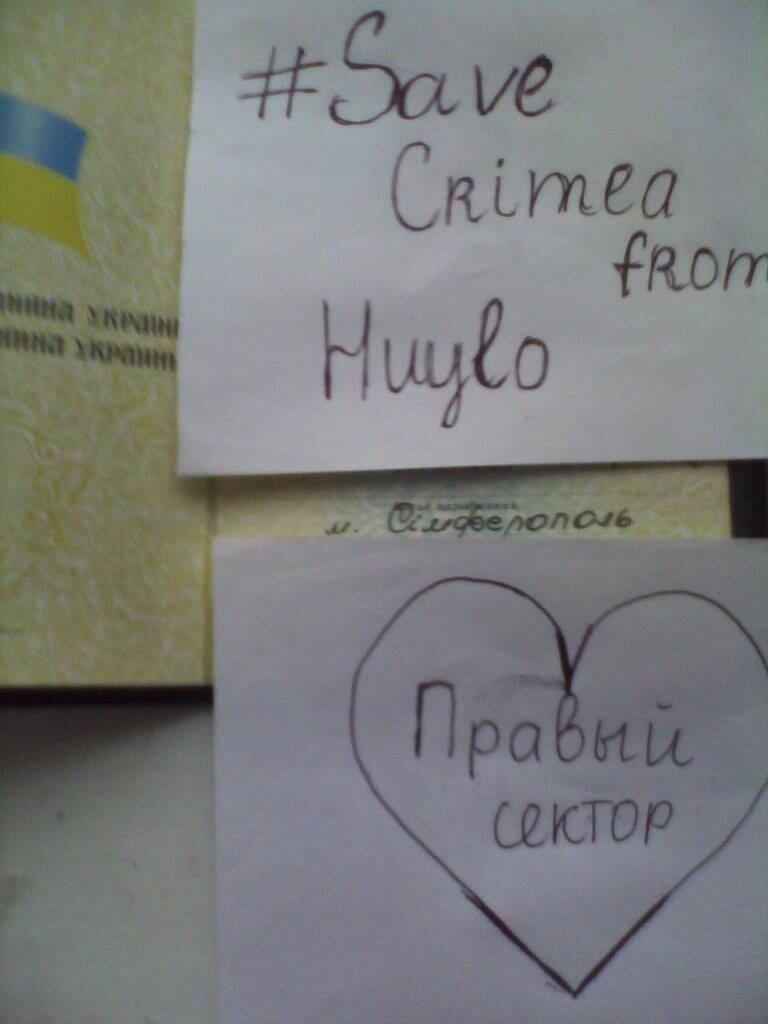 #Save
Crimea
from
Huylo
УКРАЇНИ
УКРАИНЫ
м. Сімферополь
Правый
сектор